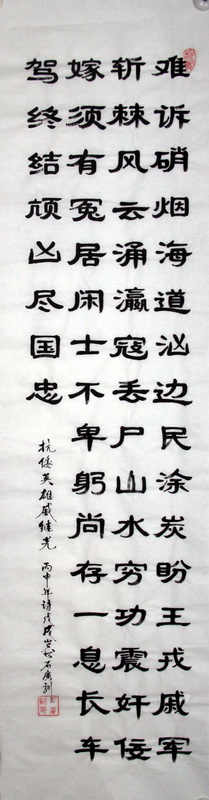 难诉硝烟海道汹边民涂炭盼王戎戚军
斩棘风云涌瀛寇丢尸山水穷功震奸佞
嫁须有冤居闲士不卑躬尚存一息长车
驾终结顽凶尽国忠
抗倭英雄戚继光 丙申年诗戊戌